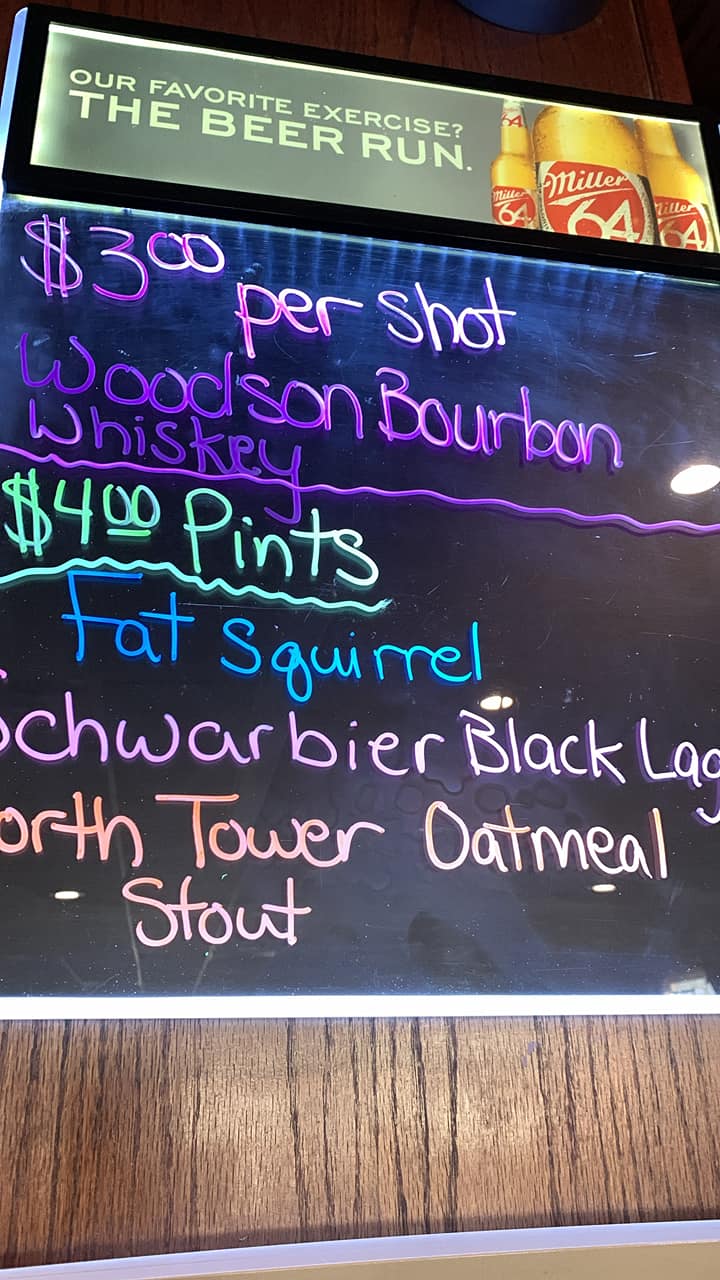 OUR FAVORITE EXERCISE?
THE BEER RUN.
64
Miller
64
Miller
64
Miller
64
$300
per shot
Woodson Bourbon
Whiskey
$400 Pints
Fat Squirrel
Schwarbier Black Lag
orth Tower Oatmeal
Stout